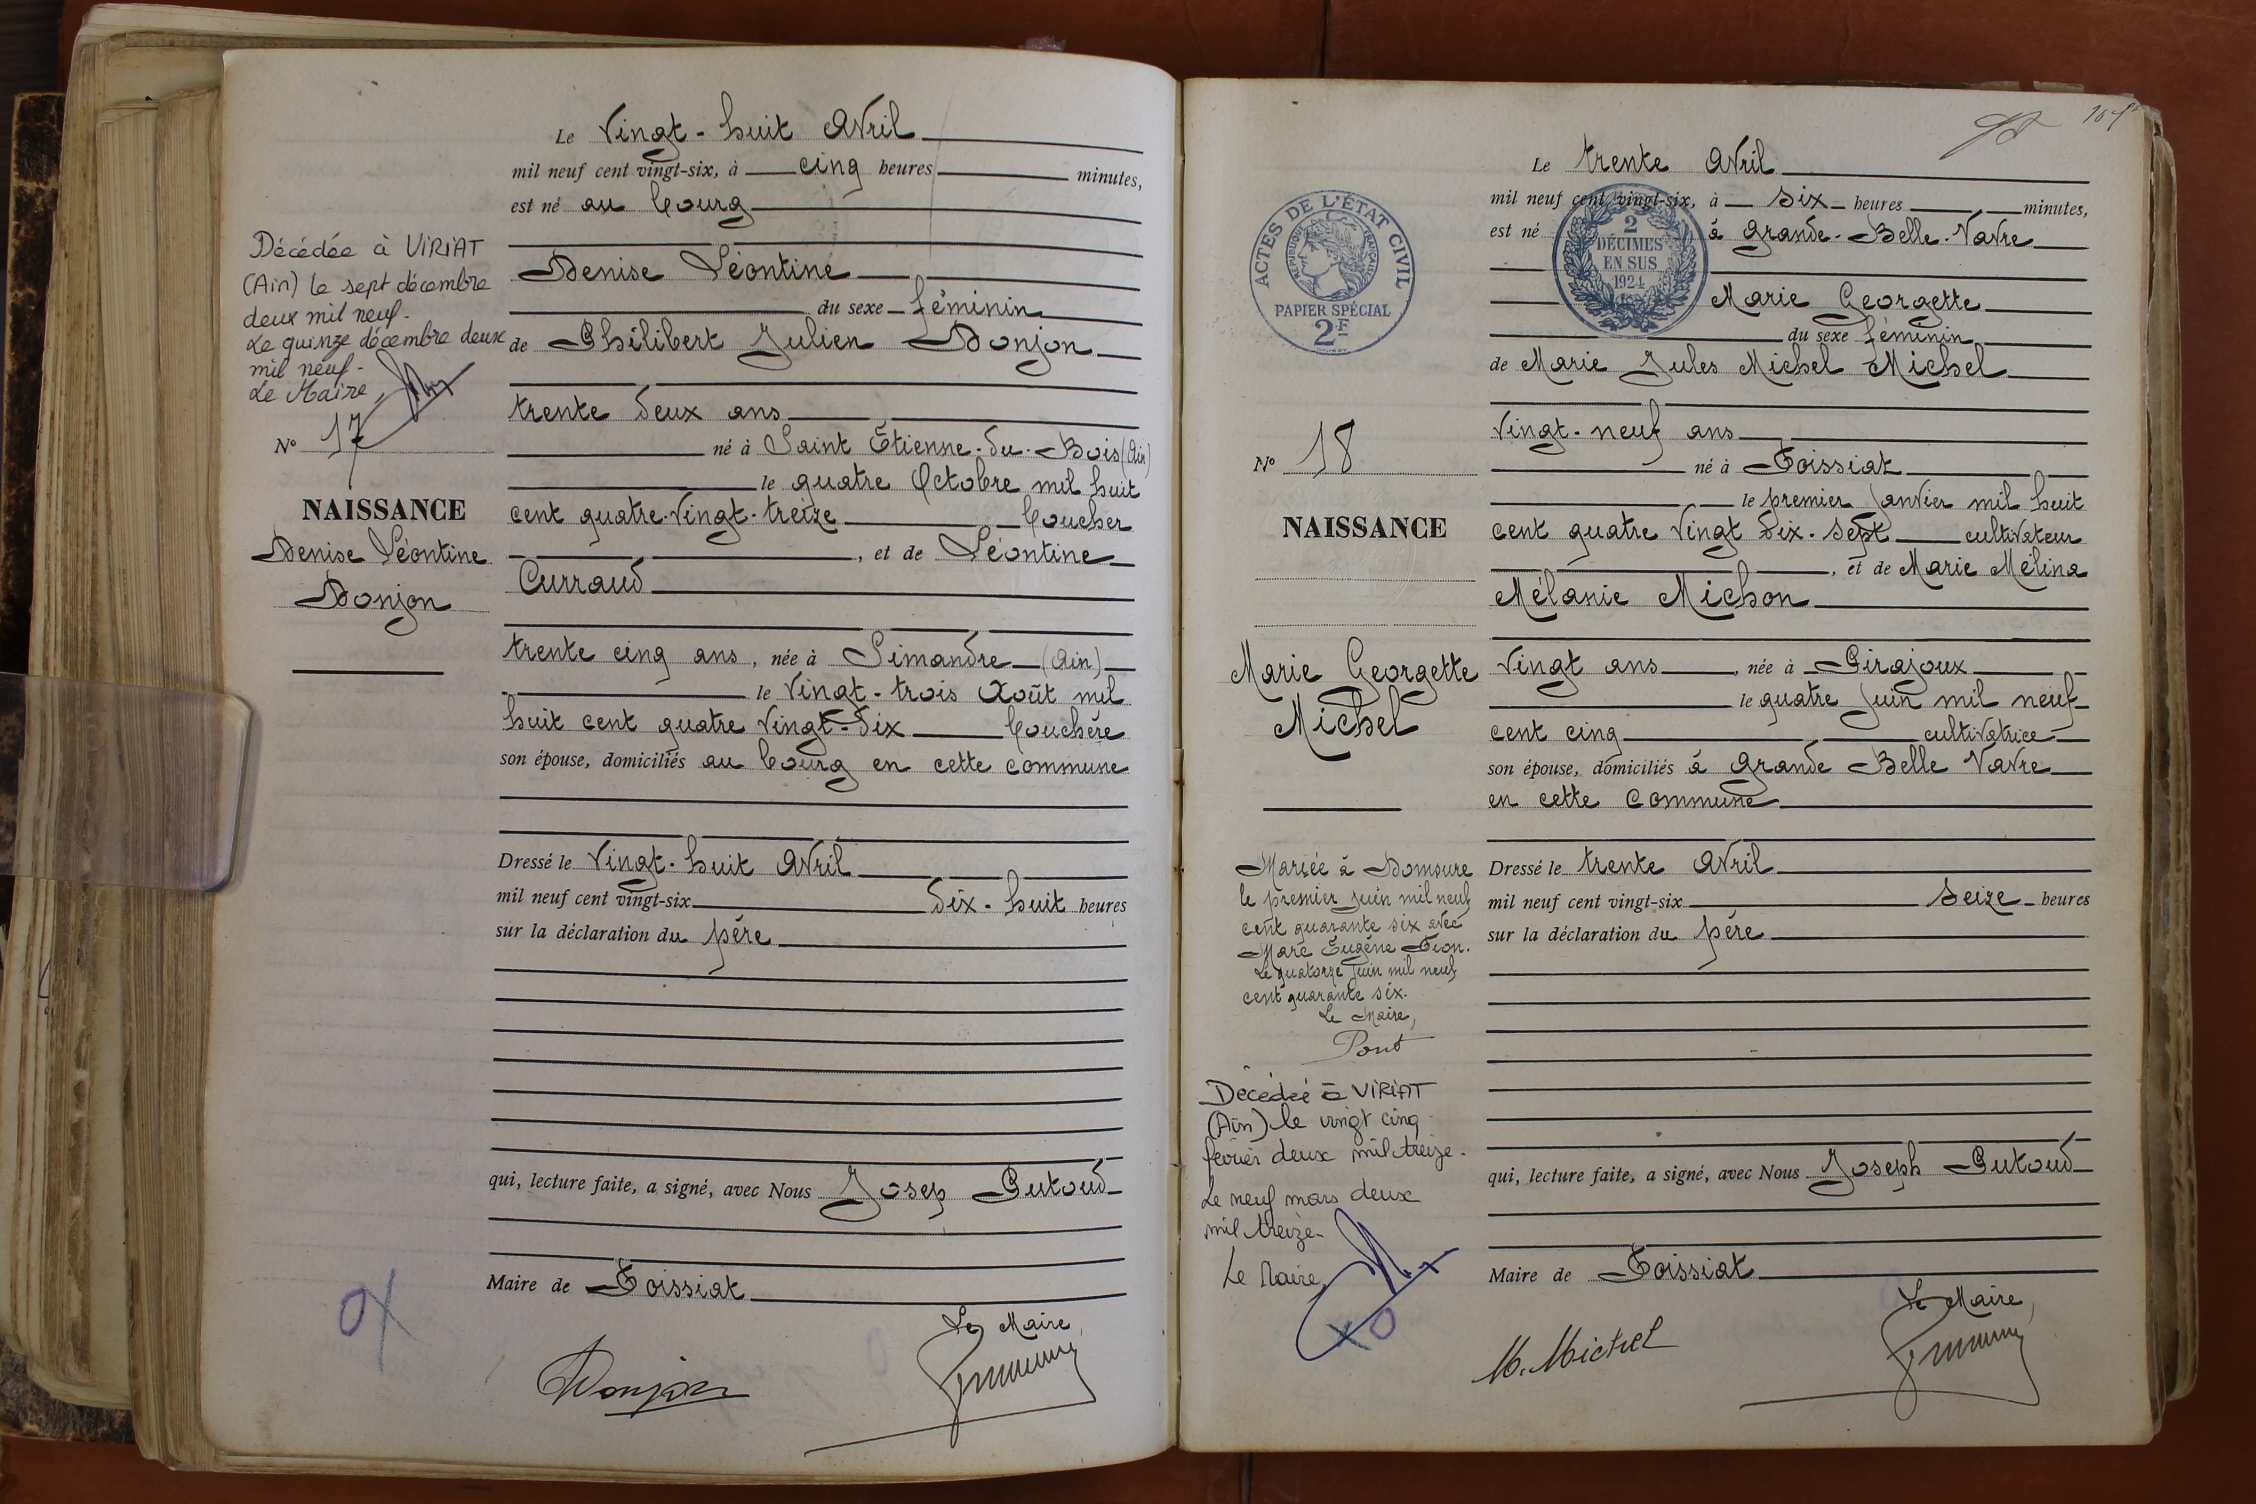 Le Vingt-huit Avril
mil neuf cent vingt-six, à cinq heures minutes,
est né au bourg
Denise Léontine
du sexe féminin
de Philibert Julien Donjon
trente deux ans
né à Saint Étienne-du-Bois (Ain)
le quatre Octobre mil huit
cent quatre-vingt-treize boucher
, et de Léontine
Curraud
trente cinq ans, née à Simandre (Ain)
le Vingt-trois Août mil
huit cent quatre vingt-dix bouchère
son épouse, domiciliés au bourg en cette commune
Dressé le Vingt-huit Avril
mil neuf cent vingt-six dix-huit heures
sur la déclaration du père
qui, lecture faite, a signé, avec Nous Josep Putoud
Maire de Foissiat
Le Maire,
Donjon
Décédée à VIRIAT
(Ain) le sept décembre
deux mil neuf.
Le quinze décembre deux
mil neuf-
Le Maire,
N° 17
NAISSANCE
Denise Léontine
Donjon
Le trente Avril
mil neuf cent vingt-six, à six heures minutes,
est né à Grande-Belle-Vavre
Marie Georgette
du sexe féminin
de Marie Jules Michel Michel
Vingt-neuf ans
né à Foissiat
le premier Janvier mil huit
cent quatre Vingt dix-sept cultivateur
, et de Marie Mélina
Mélanie Michon
Vingt ans, née à Pirajoux
le quatre Juin mil neuf
cent cinq cultivatrice
son épouse, domiciliés à Grande Belle Vavre
en cette Commune
Dressé le trente Avril
mil neuf cent vingt-six seize heures
sur la déclaration du père
qui, lecture faite, a signé, avec Nous Joseph Putoud
Maire de Foissiat
Le Maire,
M. Michel
ACTES DE L'ÉTAT CIVIL
RÉPUBLIQUE FRANÇAISE
PAPIER SPÉCIAL
2F
2
DÉCIMES
EN SUS
1924
N° 18
NAISSANCE
Marie Georgette
Michel
Mariée à Domsure
le premier juin mil neuf
cent quarante six avec
Marc Eugène Pion.
Le quatorze Juin mil neuf
cent quarante six.
Le Maire,
Pont
Décédée à VIRIAT
(Ain) le vingt cinq
février deux mil treize.
Le neuf mars deux
mil treize-
Le Maire,